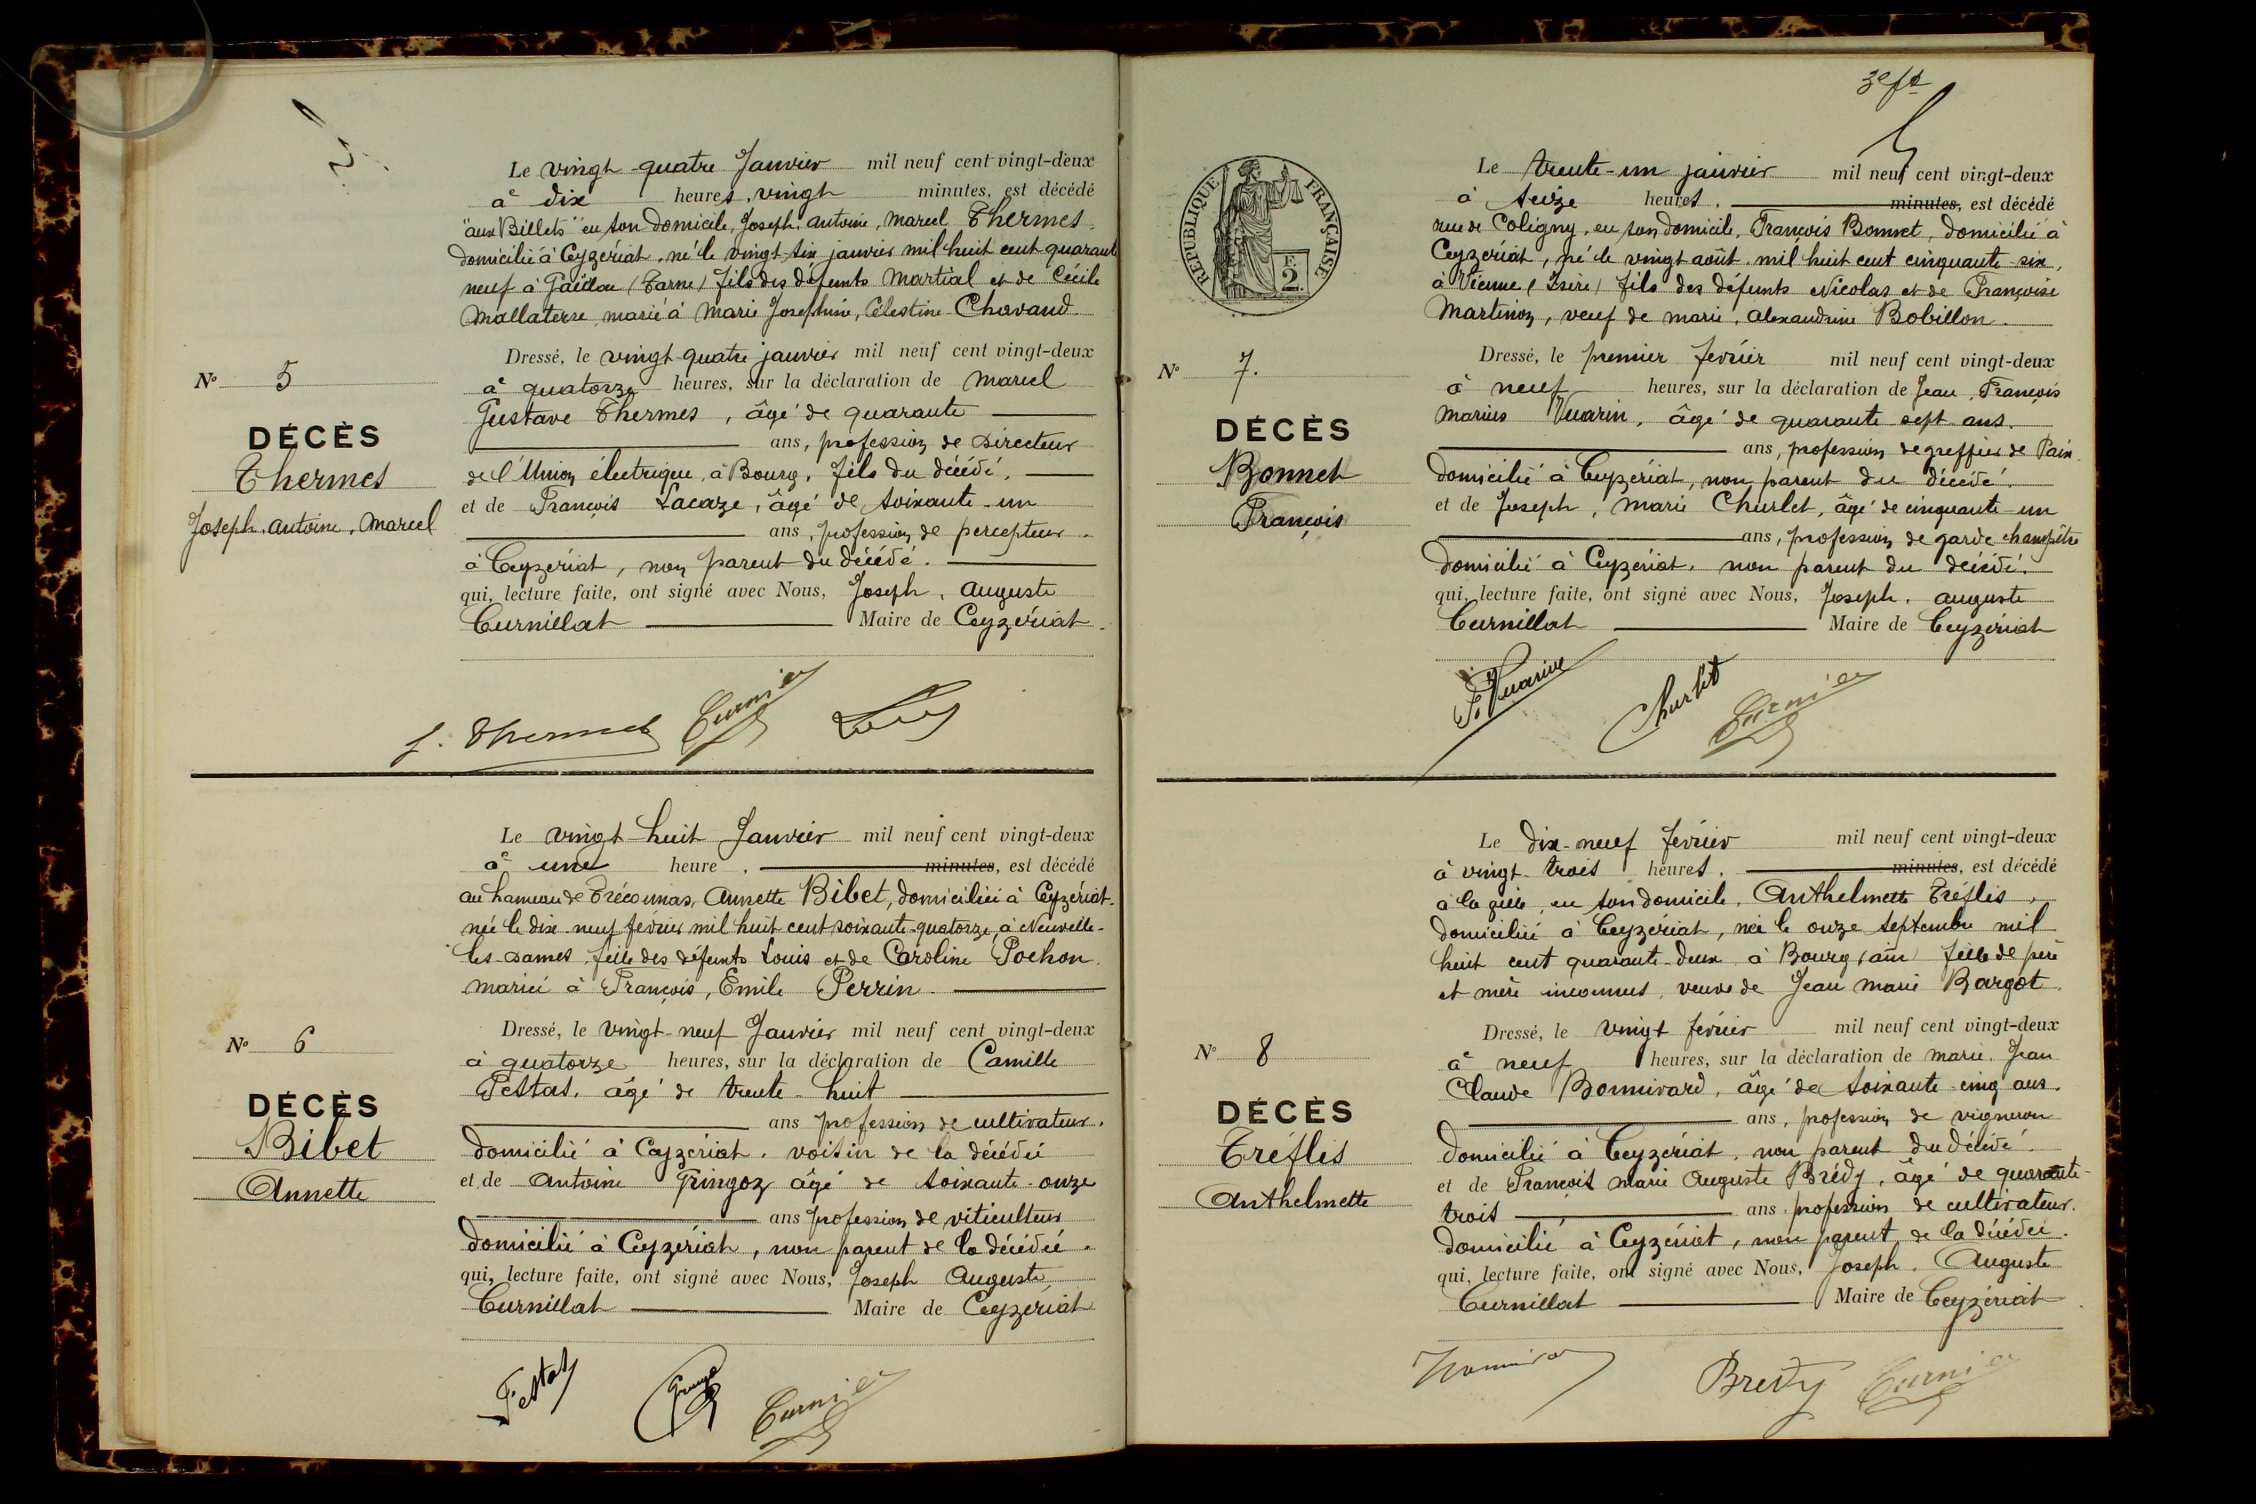 Le vingt-quatre Janvier mil neuf cent vingt-deux
à dix heures, vingt minutes, est décédé
"aux Billets" en son domicile, Joseph, Antoine, Marcel Thermes,
domicilié à Ceyzériat, né le vingt-six janvier mil huit cent quarante
neuf à Gaillac (Tarn) fils des défunts Martial et de Cécile
Mallaterre, marié à Marie Josephine, Célestine Chavand.
Dressé, le vingt-quatre janvier mil neuf cent vingt-deux
à quatorze heures, sur la déclaration de Marcel
Gustave Thermes, âgé de quarante
ans, profession de Directeur
de l'Union électrique, à Bourg, fils du décédé,
et de François Lacaze, âgé de soixante-un
ans, profession de percepteur
à Ceyzériat, non parent du décédé.
qui, lecture faite, ont signé avec Nous, Joseph, Auguste
Curnillat Maire de Ceyzériat.
N° 5
DÉCÈS
Thermes
Joseph, Antoine, Marcel
Thermes
Le vingt-huit Janvier mil neuf cent vingt-deux
à une heure, minutes, est décédé
au hameau de Tréconnas, Annette Bibet, domiciliée à Ceyzériat,
née le dix-neuf février mil huit cent soixante-quatorze, à Neuville-
les-Dames, fille des défunts Louis et de Caroline Pochon.
mariée à François, Emile Perrin.
Dressé, le vingt-neuf Janvier mil neuf cent vingt-deux
à quatorze heures, sur la déclaration de Camille
Pestas, âgé de trente-huit
ans profession de cultivateur.
domicilié à Ceyzériat, voisin de la décédée
et de Antoine Gringoz âgé de soixante-onze
ans profession de viticulteur
domicilié à Ceyzériat, non parent de la décédée.
qui, lecture faite, ont signé avec Nous, Joseph Auguste
Curnillat Maire de Ceyzériat
N° 6
DÉCÈS
Bibet
Annette
3e ft
RÉPUBLIQUE FRANÇAISE
F.
2
Le trente-un janvier mil neuf cent vingt-deux
à seize heures, minutes, est décédé
rue de Coligny, en son domicile, François Bonnet, domicilié à
Ceyzériat, né le vingt août mil huit cent cinquante-six,
à Vienne (Isère) fils des défunts Nicolas et de Françoise
Martinon, veuf de Marie, Alexandrine Bobillon.
Dressé, le premier février mil neuf cent vingt-deux
à neuf heures, sur la déclaration de Jean, François
Marius Vuarin, âgé de quarante sept ans.
ans, profession de greffier de Paix
domicilié à Ceyzériat, non parent du décédé.
et de Joseph, Marie Churlet, âgé de cinquante-un
ans, profession de garde champêtre
domicilié à Ceyzériat, non parent du décédé.
qui, lecture faite, ont signé avec Nous, Joseph, Auguste
Curnillat Maire de Ceyzériat
N° 7.
DÉCÈS
Bonnet
François
Vuarin
Churlet
Le dix-neuf février mil neuf cent vingt-deux
à vingt-trois heures, minutes, est décédé
en son domicile, Anthelmette Tréflis,
domiciliée à Ceyzériat, née le onze septembre mil
huit cent quarante-deux à Bourg (Ain) fille de père
et mère inconnus, veuve de Jean Marie Bargot.
Dressé, le vingt février mil neuf cent vingt-deux
à neuf heures, sur la déclaration de Marie, Jean
Claude Bonnivard, âgé de soixante-cinq ans.
ans, profession de vigneron
domicilié à Ceyzériat, non parent du décédé.
et de François Marie Auguste Brédy, âgé de quarante-
trois ans, profession de cultivateur.
domicilié à Ceyzériat, non parent de la décédée.
qui, lecture faite, ont signé avec Nous, Joseph, Auguste
Curnillat Maire de Ceyzériat
N° 8
DÉCÈS
Tréflis
Anthelmette
Bredy